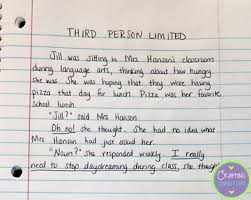 THIRD PERSON LIMITED
Jill was sitting in Mrs. Hanson's classroom
during language arts, thinking about how hungry
she was. She was hoping that they were having
pizza that day for lunch. Pizza was her favorite
school lunch.
"Jill?" said Mrs. Hanson.
Oh no! she thought. She had no idea what
Mrs. Hanson had just asked her.
"Noun?" she responded weakly. I really
need to stop daydreaming during class, she thought
Crafting
Connections